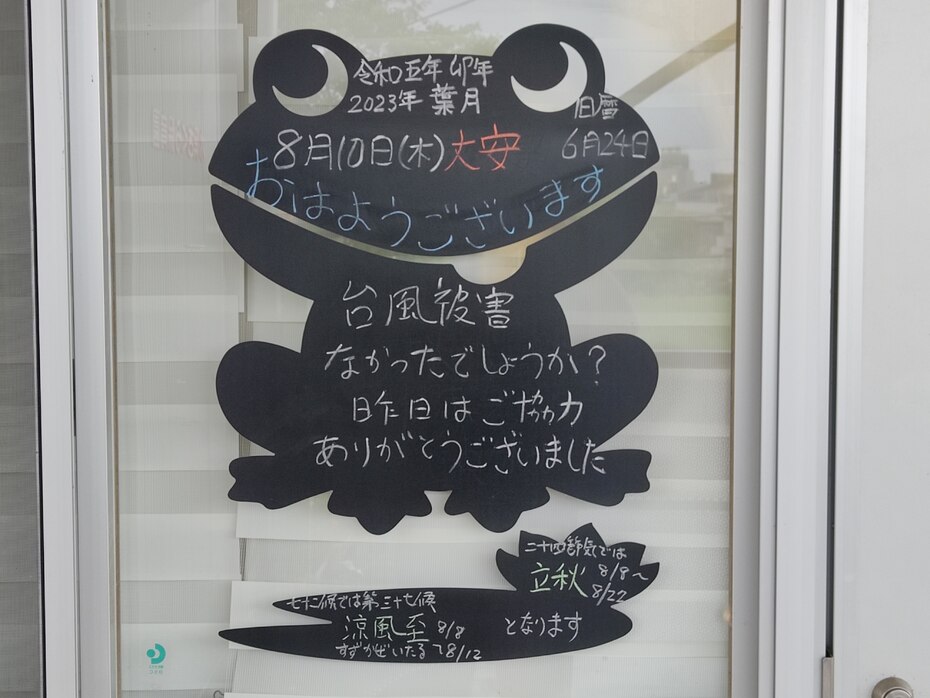 令和五年 卯年
2023年 葉月
旧暦
8月10日(木)大安
6月24日
おはようございます
台風被害
なかったでしょうか?
昨日はご協力
ありがとうございました
二十四節気では
立秋 8/8〜
8/22
七十二候では第三十七候
涼風至 8/8
すずかぜいたる 〜8/12
となります